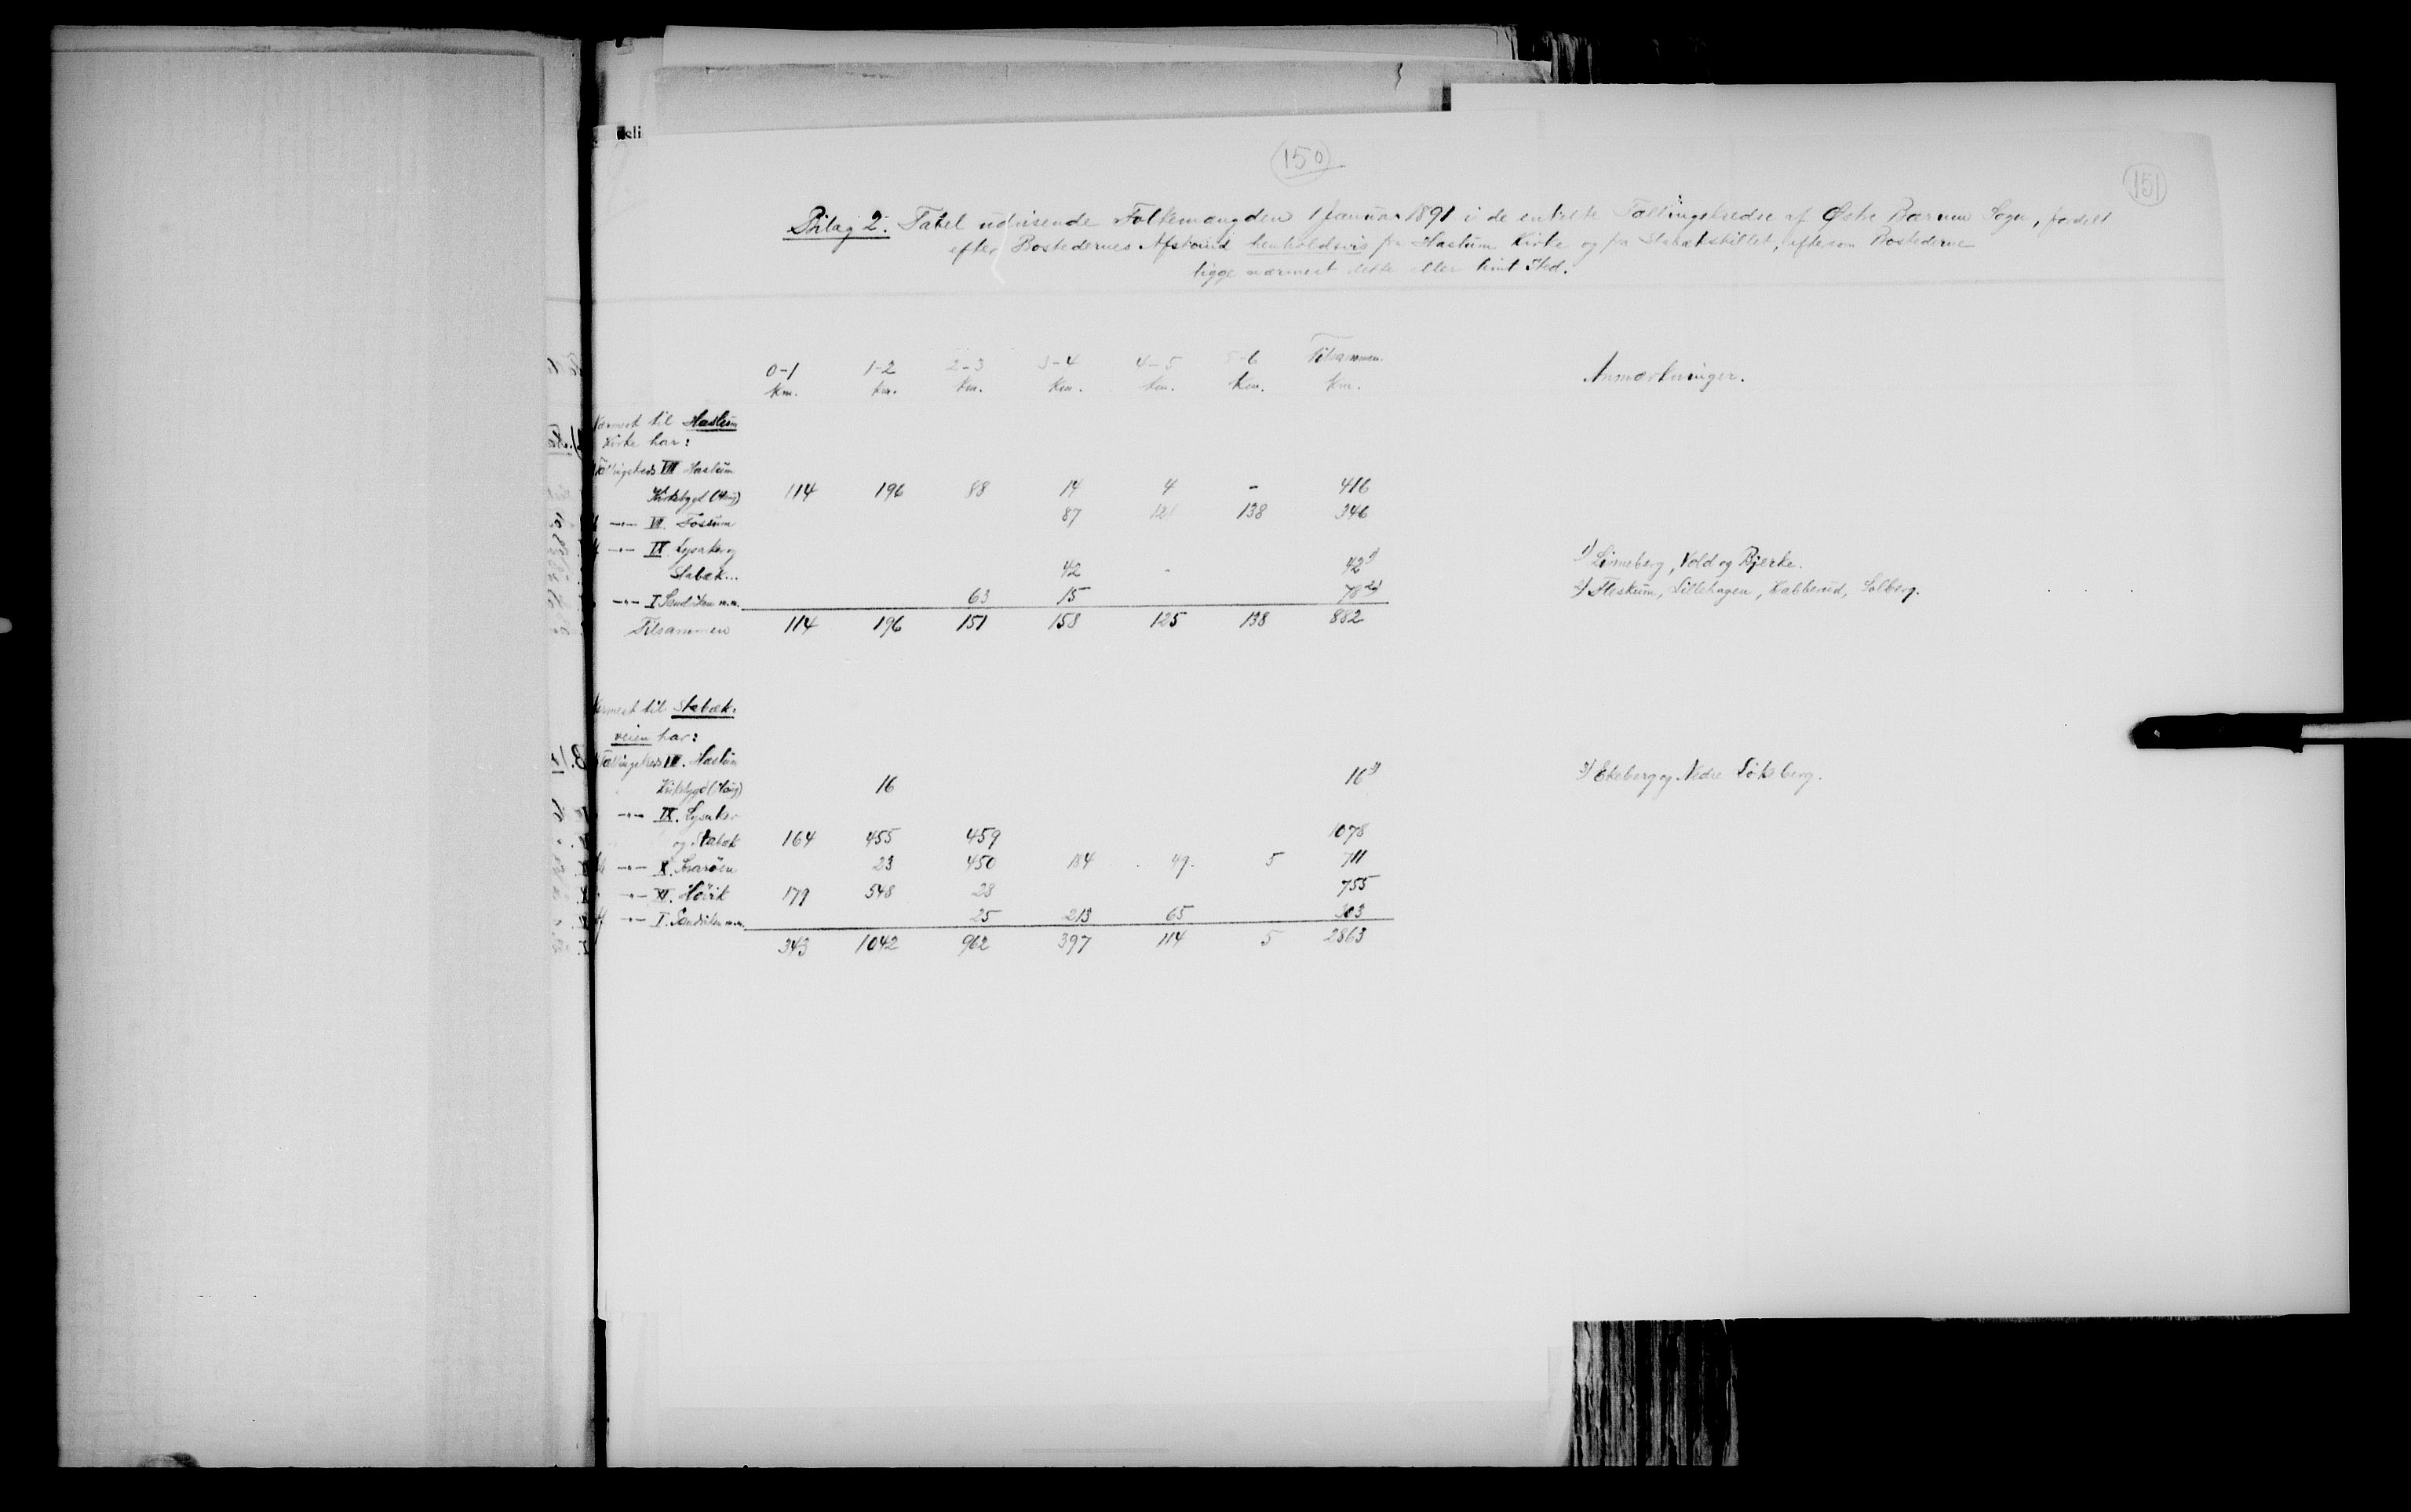 sli
150
151
Bilag 2. Tabel udvisende Folkemængden 1 Januar 1891 i de enkelte Tællingskredse af Østre Bærum Sogn, fordelt
efter Bostedernes Afstand henholdsvis fra Haslum Kirke og fra Stabækskillet, eftersom Bostederne
ligge nærmest dette eller hint Sted.
0-1 1-2 2-3 3-4 4-5 5-6 Tilsammen.
Km. Km. Km. Km. Km. Km. Km.
Anmærkninger.
Nærmest til Haslum
Kirke har:
Tællingskreds VIII Haslum
Kirkebygd (Haug) 114 196 88 14 4 - 416
—"— VII. Fossum 87 121 138 346
—"— IX Lysaker og
Stabæk... 42 - 42 1)
—"— I Sandviken m.m. 63 15 78 2)
Tilsammen 114 196 151 158 125 138 882
1) Linneberg, Vold og Bjerke.
2) Fleskum, Lillehagen, Kabberud, Solberg.
Nærmest til Stabæk-
veien har:
Tællingskreds VIII. Haslum
Kirkebygd (Haug) 16 16 3)
—"— IX. Lysaker
og Stabæk 164 455 459 1078
—"— X. Snarøen 23 450 184 49. 5 711
—"— XI. Høvik 179 548 28 755
—"— I. Sandviken m.m. 25 213 65 303
343 1042 962 397 114 5 2863
3) Ekeberg og Nedre Løkeberg.